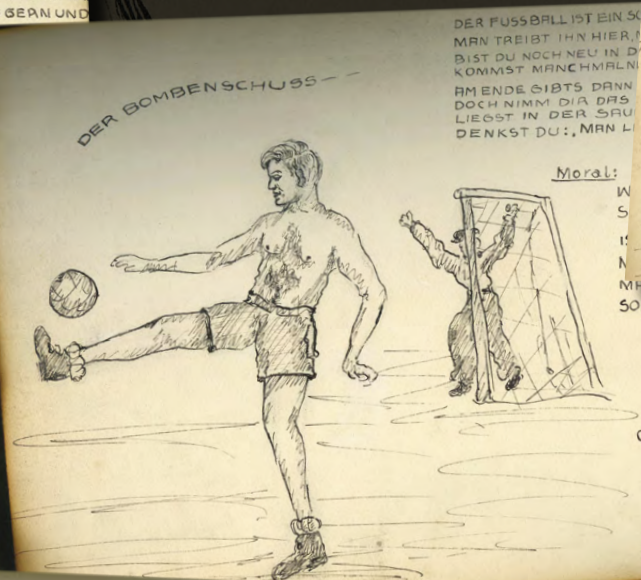 GERN UND
DER BOMBENSCHUSS---
DER FUSSBALL IST EIN
MAN TREIBT IHN HIER,
BIST DU NOCH NEU IN
KOMMST MANCHMAL
AM ENDE GIBTS DANN
DOCH NIMM DIR DAS
LIEGST IN DER
DENKST DU: „MAN
Moral: